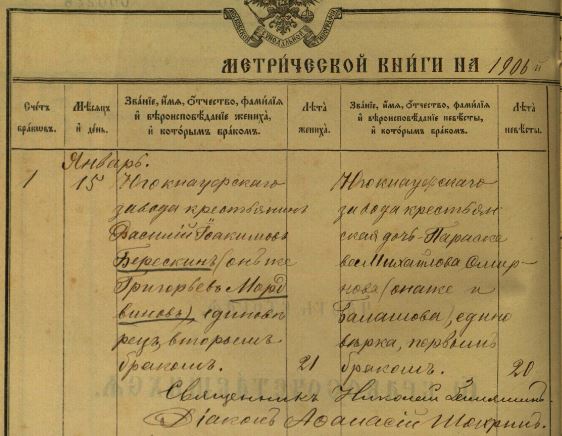 МЕТРИ́ЧЕСКОЙ КНИ́ГИ НА 1906 й
Сче́тъ бра́ковъ.
Мѣ́сяцъ и́ день.
Зва́нїе, и́мя, о́тчество, фами́лїя и́ вѣроисповѣ́данїе жениха́, и́ кото́рымъ бра́комъ.
Лѣ́та жениха́.
Зва́нїе, и́мя, о́тчество, фами́лїя и́ вѣроисповѣ́данїе невѣ́сты, и́ кото́рымъ бра́комъ.
Лѣ́та невѣ́сты.
Январь.
1
15
Югокнауфскаго
завода крестьянинъ
Василій Іоакимовъ
Берескинъ (онъ же
Григорьевъ Мард
виновъ), единовѣ
рецъ, вторымъ
бракомъ.
21
Югокнауфскаго
завода крестьян
ская дочь Параске
ва Михайлова Смир
нова (она же и
Балашова), едино
вѣрка, первымъ
бракомъ.
20
Священникъ Николай
Діаконъ Афанасій